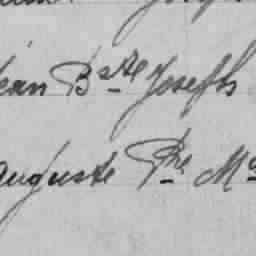 ean Bste Joseph
Auguste Phe Ma